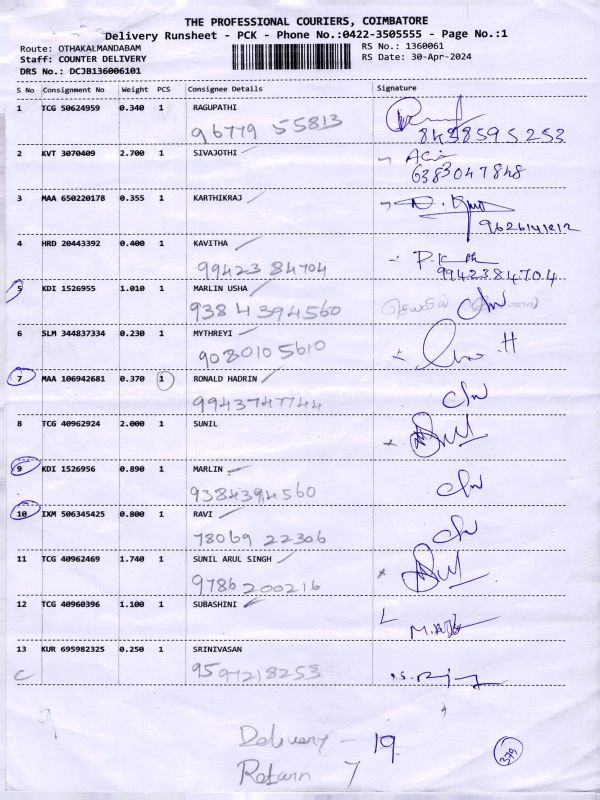 THE PROFESSIONAL COURIERS, COIMBATORE
Delivery Runsheet - PCK - Phone No.:0422-3505555 - Page No.:1
Route: OTHAKALMANDABAM RS No.: 1360061
Staff: COUNTER DELIVERY RS Date: 30-Apr-2024
DRS No.: DCJB136006101
S No Consignment No Weight PCS Consignee Details Signature
1 TCG 50624959 0.340 1 RAGUPATHI
96779 55813 8438595253
2 KVT 3070409 2.700 1 SIVAJOTHI
6383047848
3 MAA 650220178 0.355 1 KARTHIKRAJ
4 HRD 20443392 0.400 1 KAVITHA
99423 84704 9942384704
5 KDI 1526955 1.010 1 MARLIN USHA
9384394560
6 SLM 344837334 0.230 1 MYTHREYI
9080105610
7 MAA 106942681 0.370 1 RONALD HADRIN
9943747744
8 TCG 40962924 2.000 1 SUNIL
9 KDI 1526956 0.890 1 MARLIN
9384394560
10 IXM 506345425 0.800 1 RAVI
78069 22306
11 TCG 40962469 1.740 1 SUNIL ARUL SINGH
9786200216
12 TCG 40960396 1.100 1 SUBASHINI
13 KUR 695982325 0.250 1 SRINIVASAN
9597218253
9
Delivery - 19
Return 7
379